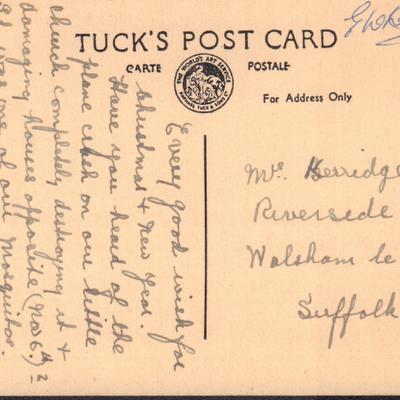 TUCK'S POST CARD
CARTE POSTALE
THE WORLD'S ART SERVICE
RAPHAEL TUCK & SONS LTD
For Address Only
Every good wish for
Christmas & New Year.
Have you heard of the
plane crash on our little
church completely destroying it &
damaging houses opposite (Nov 6th)
It was one of our Mosquitos.
Mrs Kerridge
Riverside
Walsham le
Suffolk